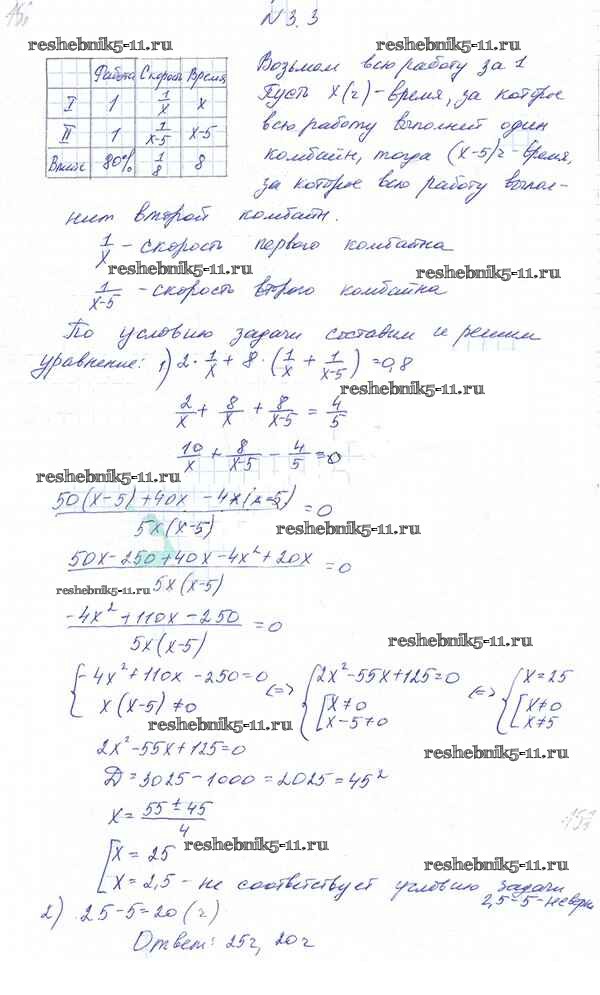 N 3.3
reshebnik5-11.ru
reshebnik5-11.ru
Работа Скорость Время
I 1 1/x x
II 1 1/(x-5) x-5
Вместе 80% 1/8 8
Возьмем всю работу за 1
Пусть x(ч) - время, за которое
всю работу выполнит один
комбайн, тогда (x-5)ч - время,
за которое всю работу выпол-
нит второй комбайн.
1/x - скорость первого комбайна
reshebnik5-11.ru
reshebnik5-11.ru
1/(x-5) - скорость второго комбайна
По условию задачи составим и решим
уравнение: 1) 2·1/x + 8·(1/x + 1/(x-5)) = 0,8
reshebnik5-11.ru
2/x + 8/x + 8/(x-5) = 4/5
10/x + 8/(x-5) - 4/5 = 0
reshebnik5-11.ru
(50(x-5)+40x-4x(x-5))/(5x(x-5)) = 0
reshebnik5-11.ru
(50x-250+40x-4x²+20x)/(5x(x-5)) = 0
reshebnik5-11.ru
(-4x²+110x-250)/(5x(x-5)) = 0
reshebnik5-11.ru
{-4x²+110x-250=0 <=> {2x²-55x+125=0 <=> {x=25
x(x-5)≠0 [x≠0 [x≠0
x-5≠0 x≠5
reshebnik5-11.ru
reshebnik5-11.ru
2x²-55x+125=0
D=3025-1000=2025=45²
x=(55±45)/4
reshebnik5-11.ru
[x=25
reshebnik5-11.ru
x=2,5 - не соответствует условию задачи
2,5-5-неверн
2) 25-5=20(ч)
Ответ: 25ч, 20ч